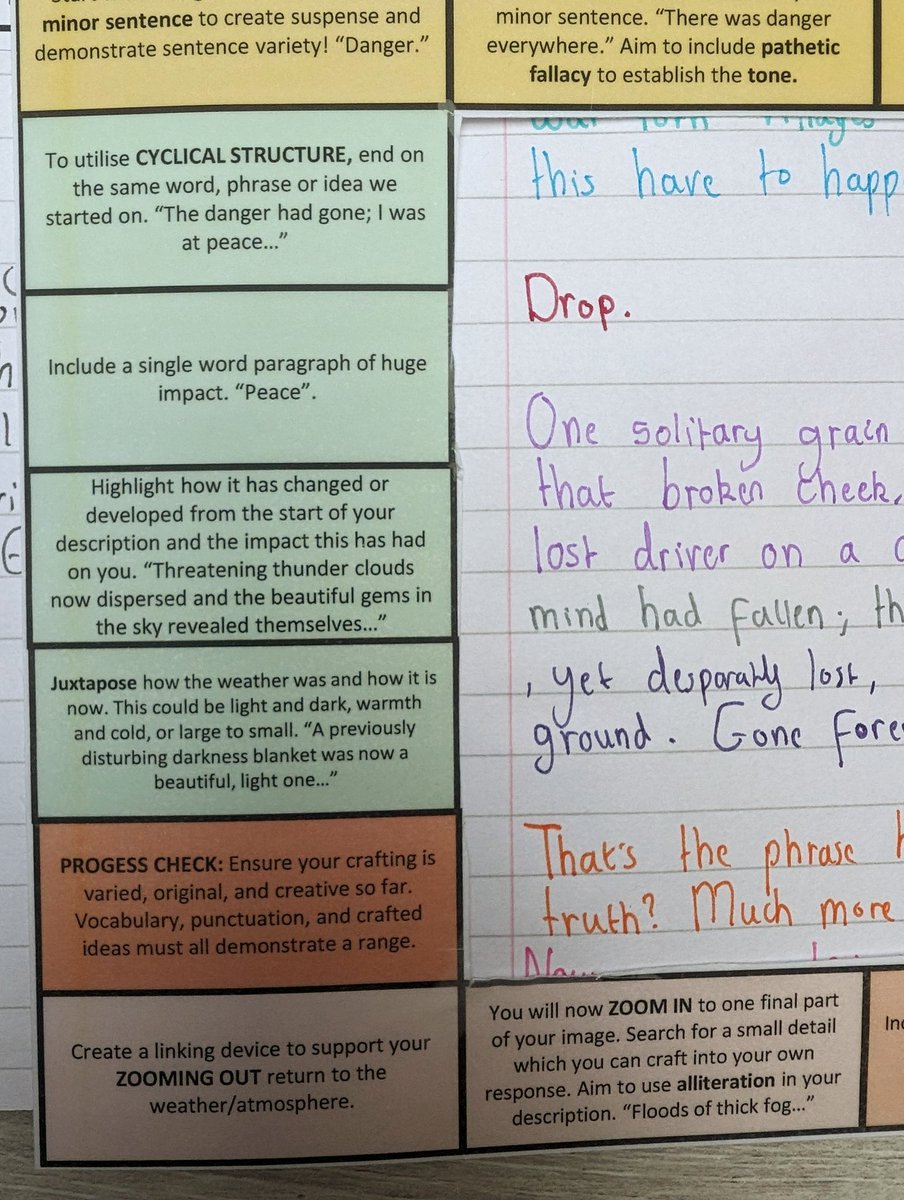 minor sentence to create suspense and
demonstrate sentence variety! “Danger.”
minor sentence. “There was danger
everywhere.” Aim to include pathetic
fallacy to establish the tone.
To utilise CYCLICAL STRUCTURE, end on
the same word, phrase or idea we
started on. “The danger had gone; I was
at peace…”
Include a single word paragraph of huge
impact. “Peace”.
Highlight how it has changed or
developed from the start of your
description and the impact this has had
on you. “Threatening thunder clouds
now dispersed and the beautiful gems in
the sky revealed themselves…”
Juxtapose how the weather was and how it is
now. This could be light and dark, warmth
and cold, or large to small. “A previously
disturbing darkness blanket was now a
beautiful, light one…”
PROGESS CHECK: Ensure your crafting is
varied, original, and creative so far.
Vocabulary, punctuation, and crafted
ideas must all demonstrate a range.
Create a linking device to support your
ZOOMING OUT return to the
weather/atmosphere.
this have to happ
Drop.
One solitary grain
that broken cheek,
lost driver on a
mind had fallen; th
, yet desparatly lost,
ground. Gone fore
That's the phrase h
truth? Much more
You will now ZOOM IN to one final part
of your image. Search for a small detail
which you can craft into your own
response. Aim to use alliteration in your
description. “Floods of thick fog…”